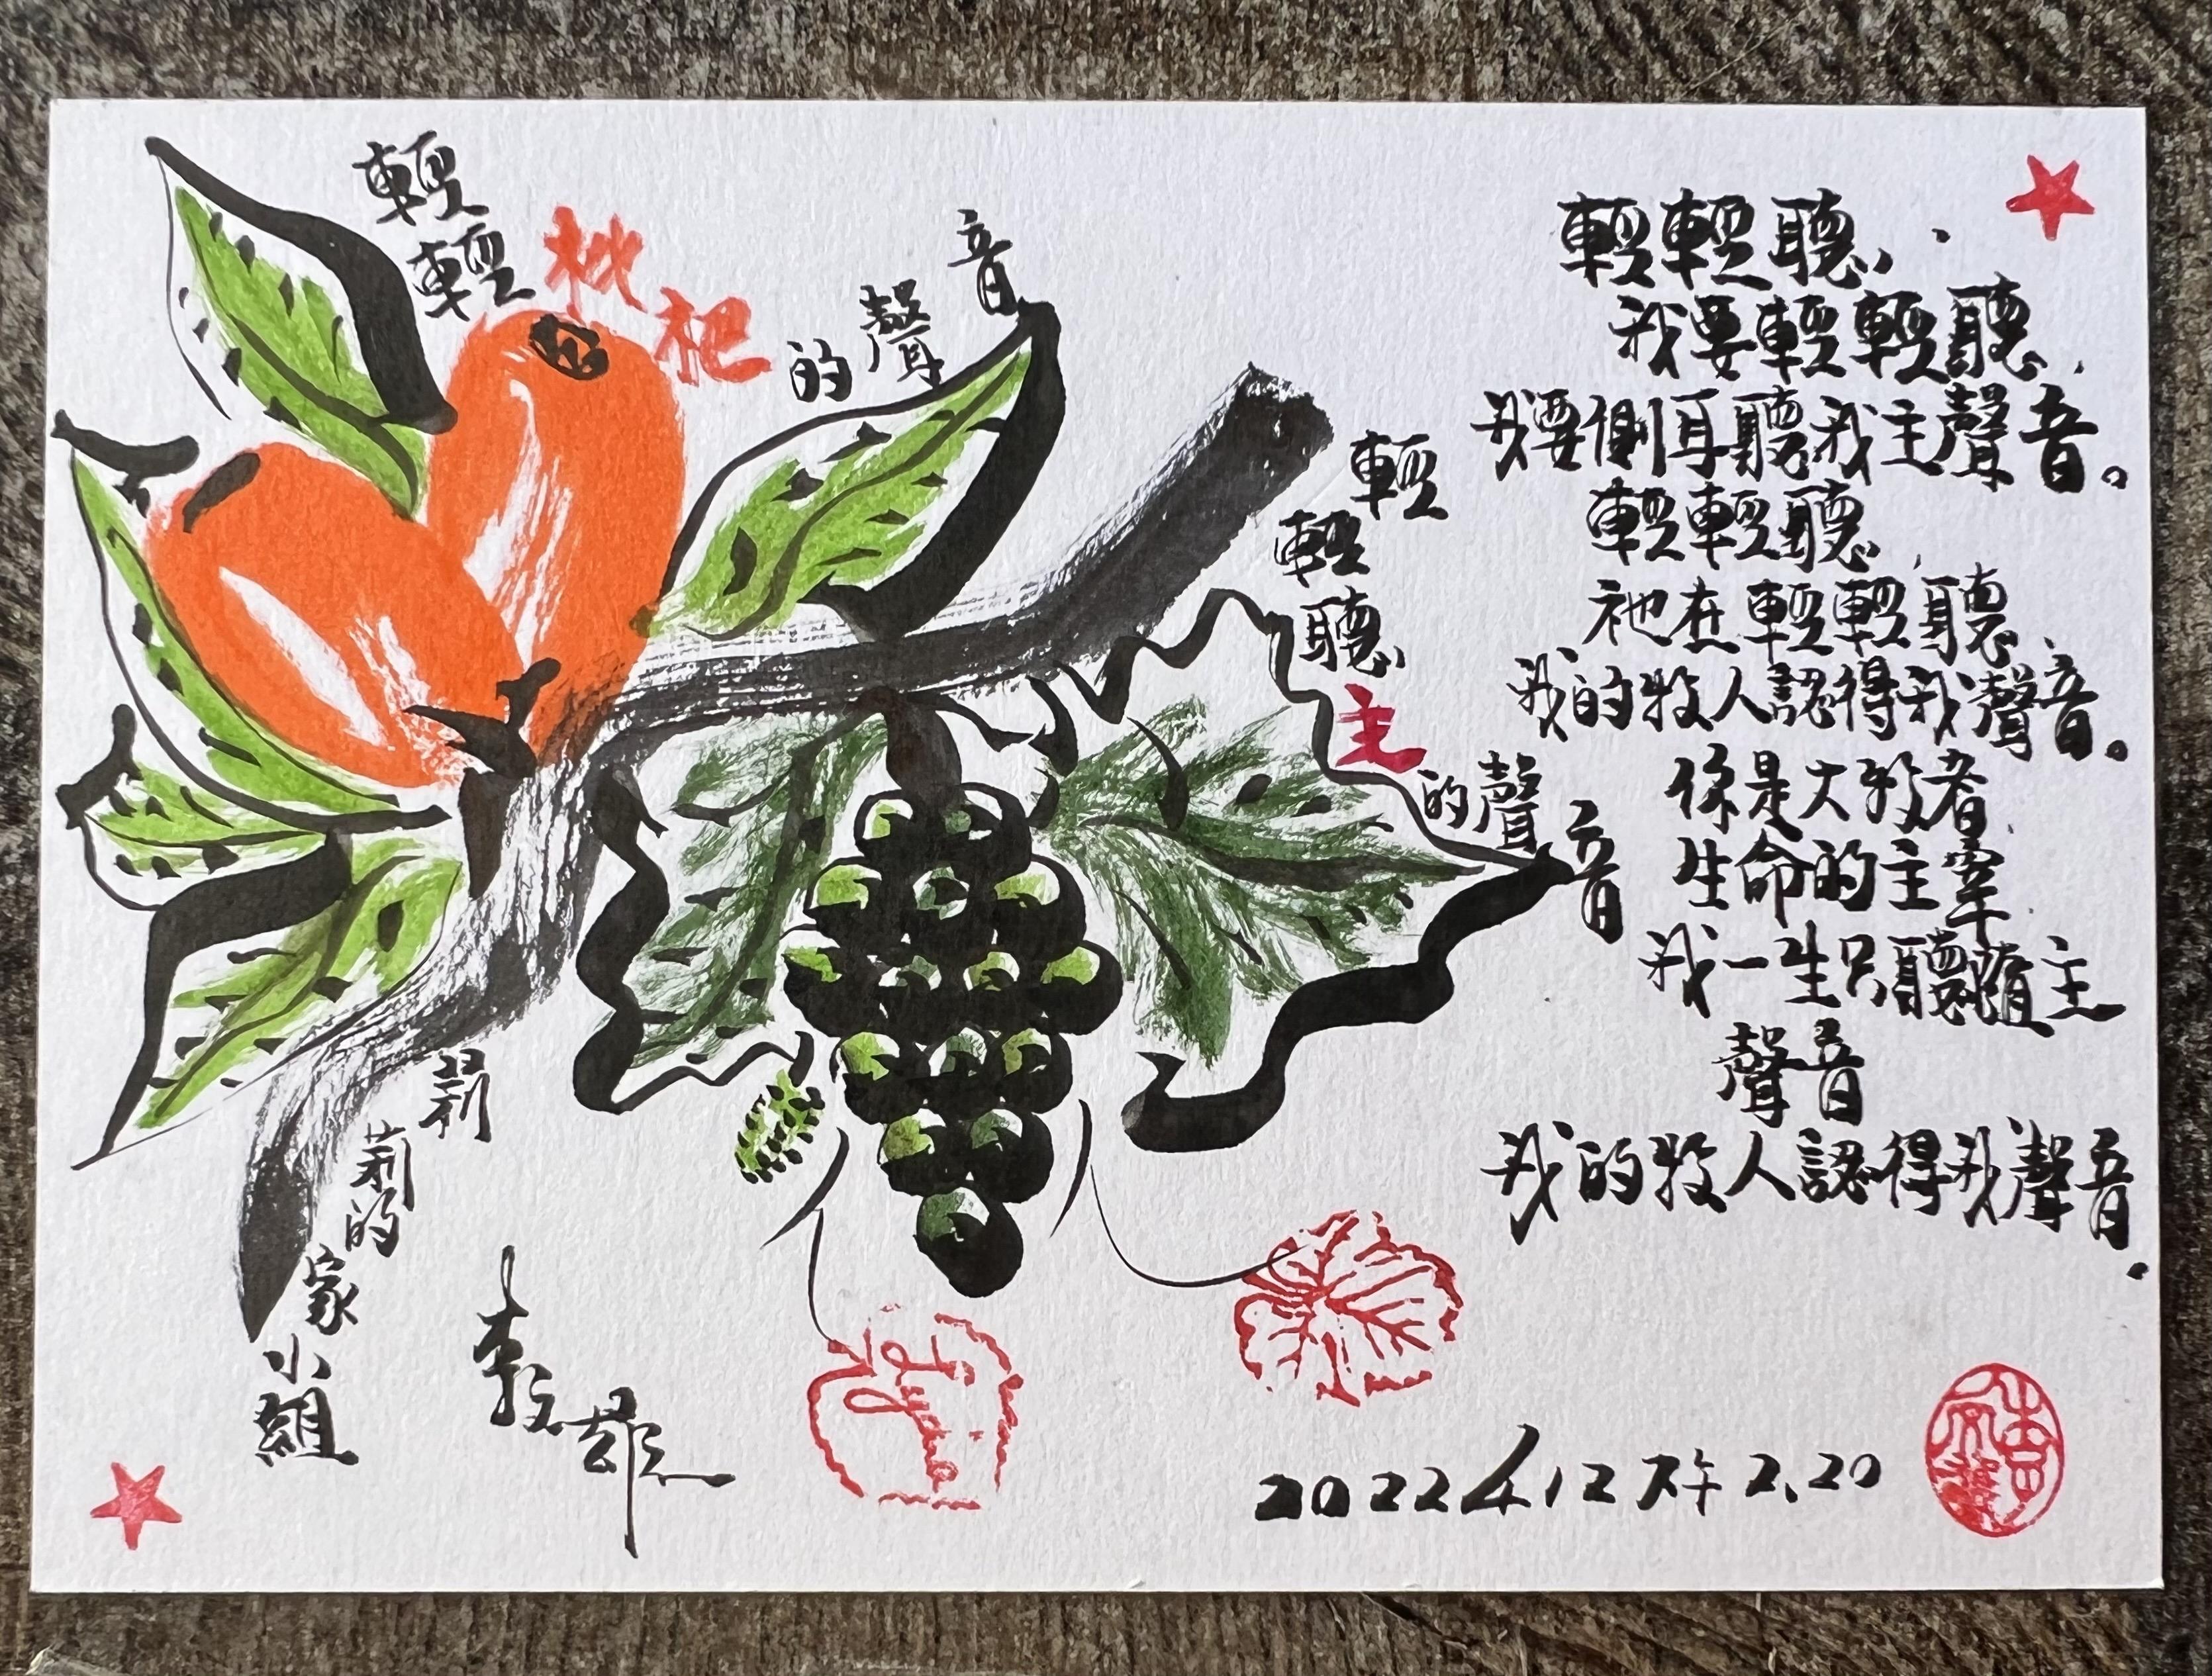 輕輕枇杷的聲音
輕輕聽主的聲音
輕輕聽,
我要輕輕聽,
我要側耳聽我主聲音。
輕輕聽,
祂在輕輕聽
我的牧人認得我聲音。
你是大牧者
生命的主宰
我一生只聽隨主
聲音
我的牧人認得我聲音.
莉莉的家小組
2022 4.12 下午 2.20